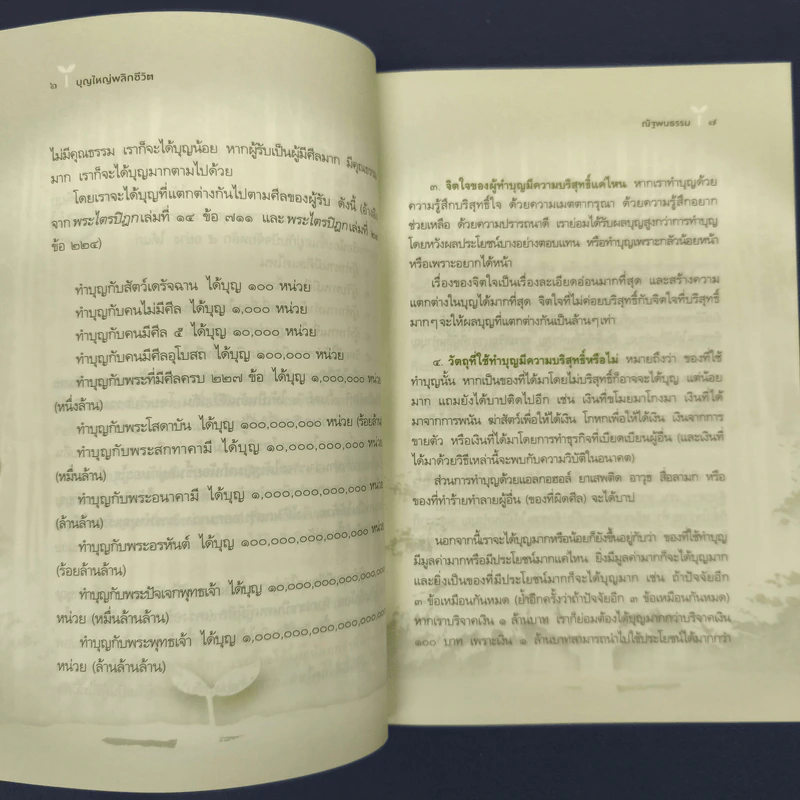 ๖ บุญใหญ่พลิกชีวิต
ไม่มีคุณธรรม เราก็จะได้บุญน้อย หากผู้รับเป็นผู้มีศีลมาก มีคุณธรรม
มาก เราก็จะได้บุญมากตามไปด้วย
โดยเราจะได้บุญที่แตกต่างกันไปตามศีลของผู้รับ ดังนี้
จากพระไตรปิฎกเล่มที่ ๑๔ ข้อ ๗๑๑ และพระไตรปิฎกเล่มที่
ข้อ ๒๒๔)
ทำบุญกับสัตว์เดรัจฉาน ได้บุญ ๑๐๐ หน่วย
ทำบุญกับคนไม่มีศีล ได้บุญ ๑,๐๐๐ หน่วย
ทำบุญกับคนมีศีล ๕ ได้บุญ ๑๐,๐๐๐ หน่วย
ทำบุญกับคนมีศีลอุโบสถ ได้บุญ ๑๐๐,๐๐๐ หน่วย
ทำบุญกับพระที่มีศีลครบ ๒๒๗ ข้อ ได้บุญ ๑,๐๐๐,๐๐๐ หน่วย
(หนึ่งล้าน)
ทำบุญกับพระโสดาบัน ได้บุญ ๑๐๐,๐๐๐,๐๐๐ หน่วย (ร้อยล้าน)
ทำบุญกับพระสกทาคามี ได้บุญ ๑๐,๐๐๐,๐๐๐,๐๐๐ หน่วย
(หมื่นล้าน)
ทำบุญกับพระอนาคามี ได้บุญ ๑,๐๐๐,๐๐๐,๐๐๐,๐๐๐ หน่วย
(ล้านล้าน)
ทำบุญกับพระอรหันต์ ได้บุญ ๑๐๐,๐๐๐,๐๐๐,๐๐๐,๐๐๐ หน่วย
(ร้อยล้านล้าน)
ทำบุญกับพระปัจเจกพุทธเจ้า ได้บุญ ๑๐,๐๐๐,๐๐๐,๐๐๐,๐๐๐,๐๐๐
หน่วย (หมื่นล้านล้าน)
ทำบุญกับพระพุทธเจ้า ได้บุญ ๑,๐๐๐,๐๐๐,๐๐๐,๐๐๐,๐๐๐,๐๐๐
หน่วย (ล้านล้านล้าน)
ณัฐพบธรรม ๗
๓. จิตใจของผู้ทำบุญมีความบริสุทธิ์แค่ไหน หากเราทำบุญด้วย
ความรู้สึกบริสุทธิ์ใจ ด้วยความเมตตากรุณา ด้วยความรู้สึกอยาก
ช่วยเหลือ ด้วยความปรารถนาดี เราย่อมได้รับผลบุญสูงกว่าการทำบุญ
โดยหวังผลประโยชน์บางอย่างตอบแทน หรือทำบุญเพราะกลัวน้อยหน้า
หรือเพราะอยากได้หน้า
เรื่องของจิตใจเป็นเรื่องละเอียดอ่อนมากที่สุด และสร้างความ
แตกต่างในบุญได้มากที่สุด จิตใจที่ไม่ค่อยบริสุทธิ์กับจิตใจที่บริสุทธิ์
มากๆ จะให้ผลบุญที่แตกต่างกันเป็นล้านๆ เท่า
๔. วัตถุที่ใช้ทำบุญมีความบริสุทธิ์หรือไม่ หมายถึงว่า ของที่ใช้
ทำบุญนั้น หากเป็นของที่ได้มาโดยไม่บริสุทธิ์ก็อาจจะได้บุญ แต่น้อย
มาก แถมยังได้บาปติดไปอีก เช่น เงินที่ขโมยมาโกงมา เงินที่ได้
มาจากการพนัน ฆ่าสัตว์เพื่อให้ได้เงิน โกหกเพื่อให้ได้เงิน เงินจากการ
ขายตัว หรือเงินที่ได้มาโดยการทำธุรกิจที่เบียดเบียนผู้อื่น (และเงินที่
ได้มาด้วยวิธีเหล่านี้จะพบกับความวิบัติในอนาคต)
ส่วนการทำบุญด้วยแอลกอฮอล์ ยาเสพติด อาวุธ สื่อลามก หรือ
ของที่ทำร้ายทำลายผู้อื่น (ของที่ผิดศีล) จะได้บาป
นอกจากนี้เราจะได้บุญมากหรือน้อยก็ยังขึ้นอยู่กับว่า ของที่ใช้ทำบุญ
มีมูลค่ามากหรือมีประโยชน์มากแค่ไหน ยิ่งมีมูลค่ามากก็จะได้บุญมาก
และยิ่งเป็นของที่มีประโยชน์มากก็จะได้บุญมาก เช่น ถ้าปัจจัยอีก
๓ ข้อเหมือนกันหมด (ย้ำอีกครั้งว่าถ้าปัจจัยอีก ๓ ข้อเหมือนกันหมด)
หากเราบริจาคเงิน ๑ ล้านบาท เราก็ย่อมต้องได้บุญมากกว่าบริจาคเงิน
๑๐๐ บาท เพราะเงิน ๑ ล้านบาทสามารถนำไปใช้ประโยชน์ได้มากกว่า